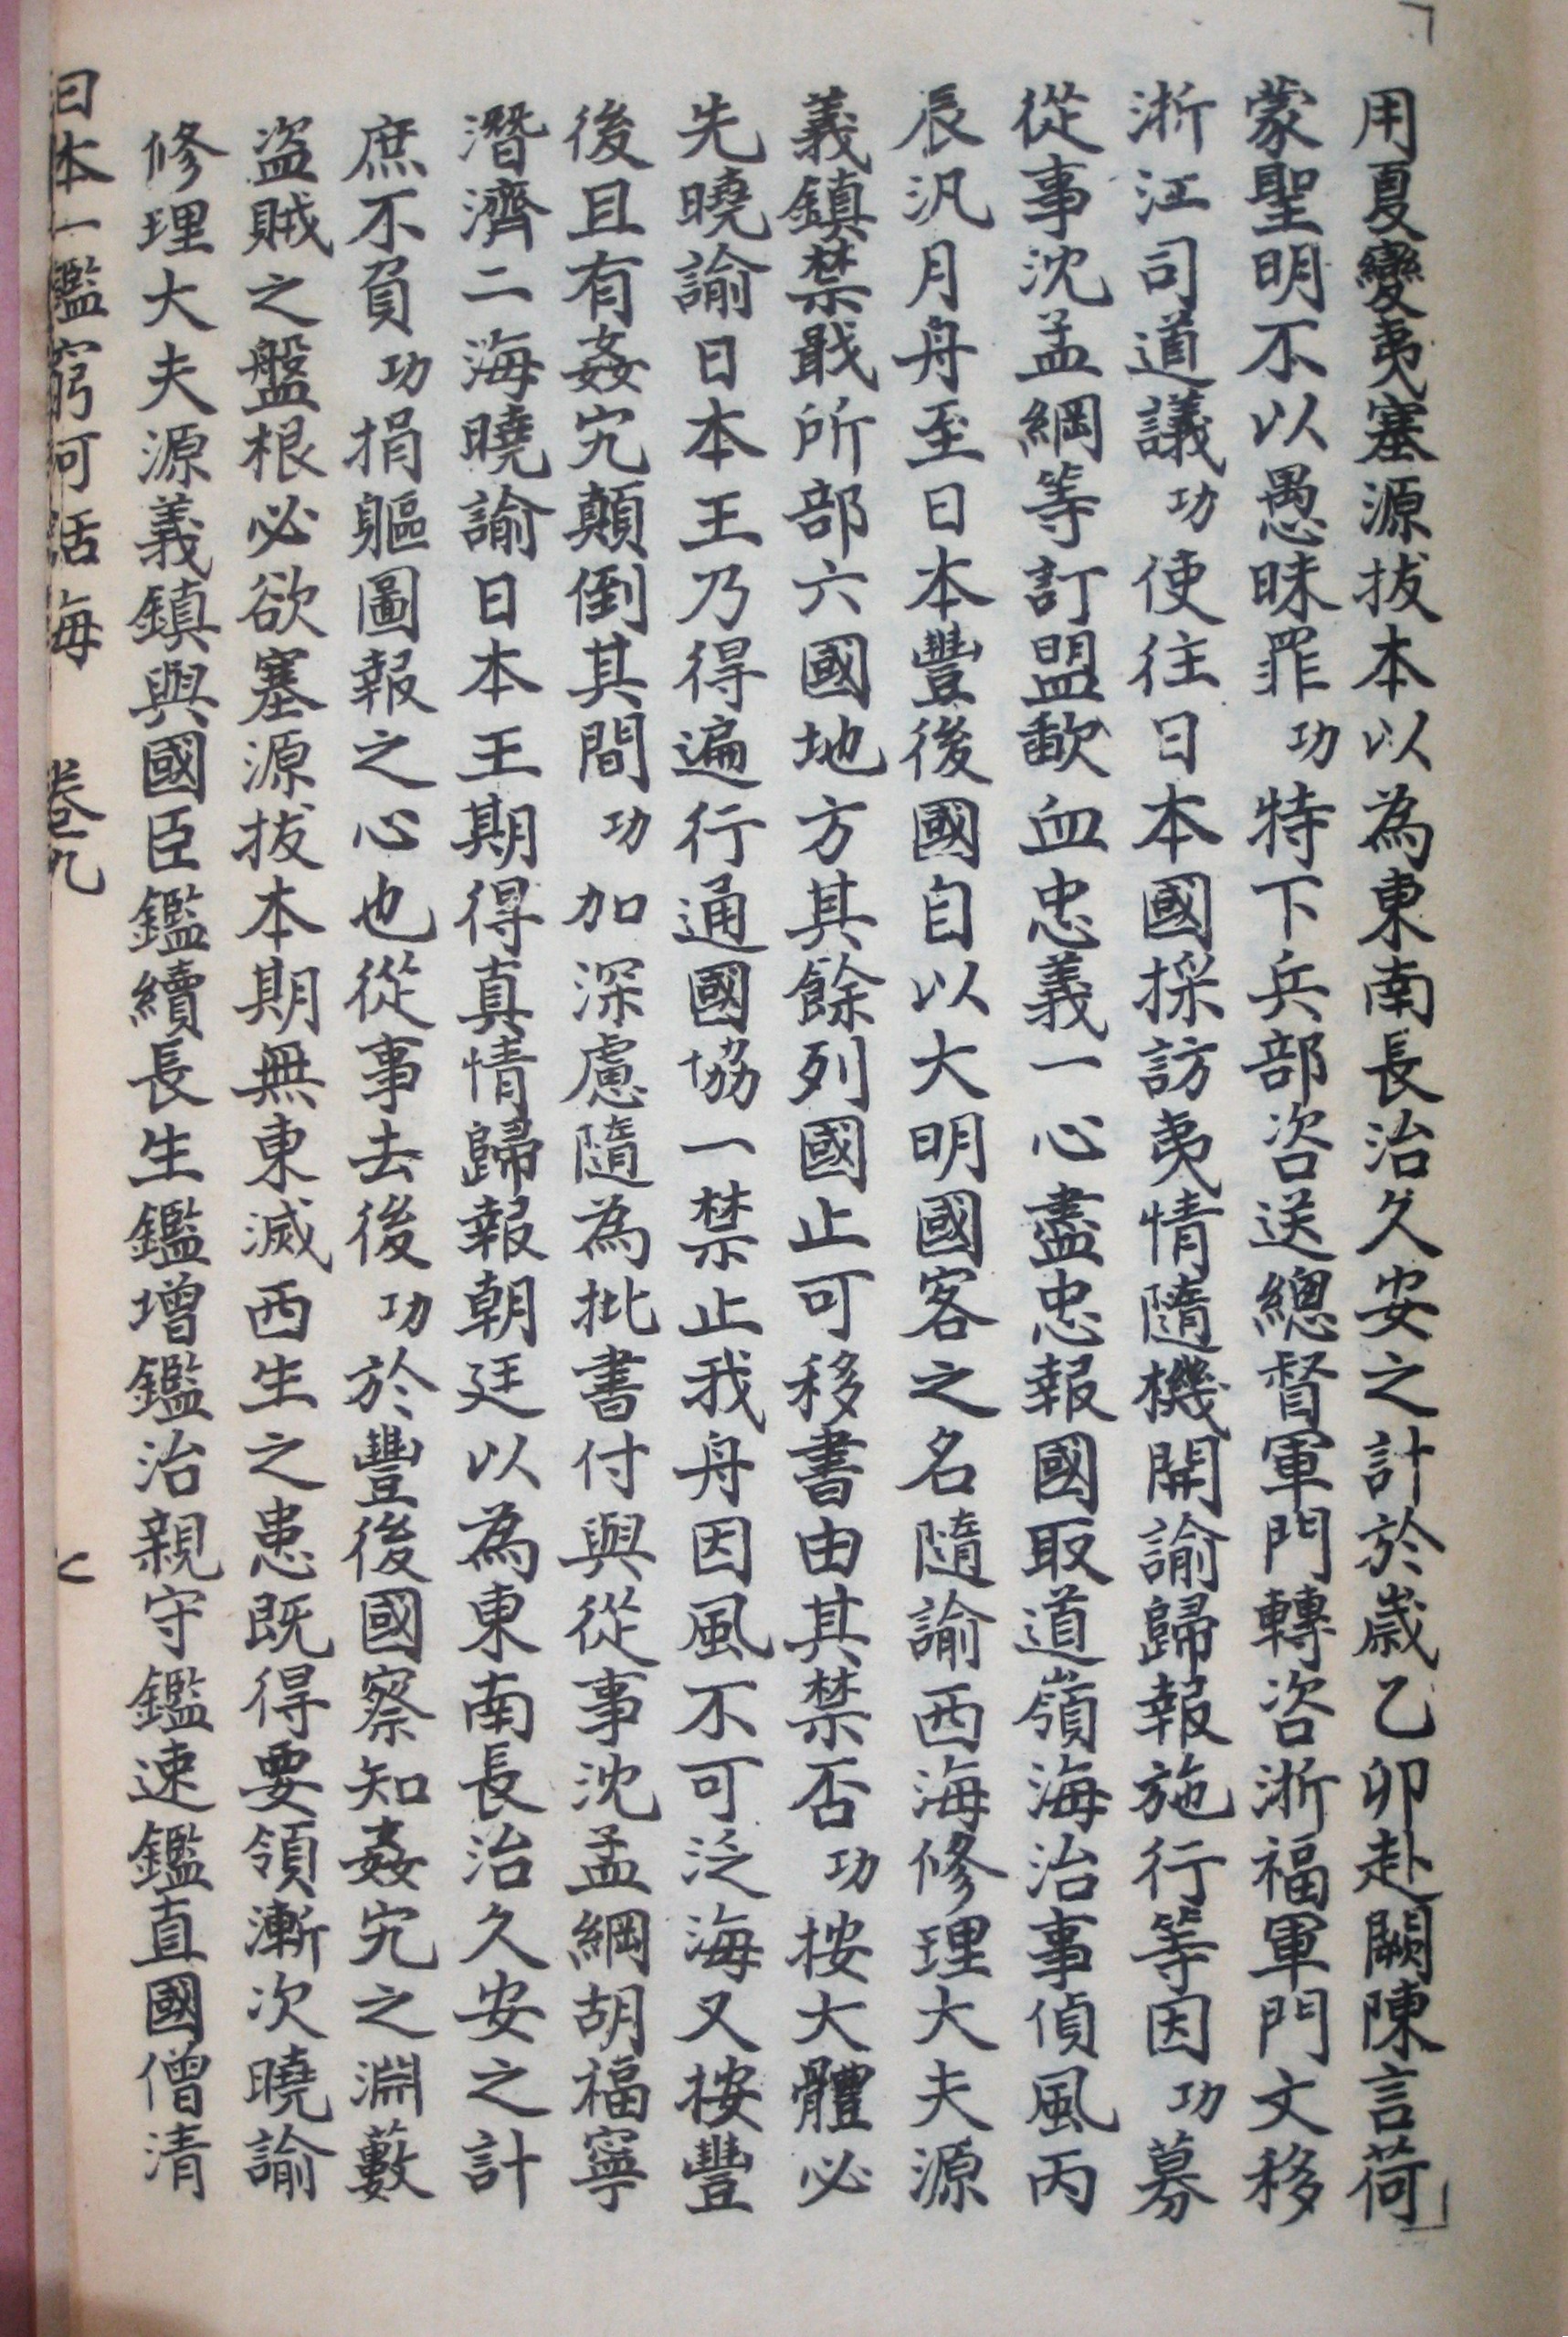 用夏變夷塞源拔本以為東南長治久安之計於歲乙卯赴闕陳言荷
蒙聖明不以愚昧罪功特下兵部咨送總督軍門轉咨浙福軍門文移
浙江司道議功使往日本國採訪夷情隨機開諭歸報施行等因功募
從事沈孟綱等訂盟歃血忠義一心盡忠報國取道嶺海治事偵風丙
辰汛月舟至日本豐後國自以大明國客之名隨諭西海修理大夫源
義鎮禁戢所部六國地方其餘列國止可移書由其禁否功按大體必
先曉諭日本王乃得遍行通國協一禁止我舟因風不可泛海又按豐
後且有姦宄顛倒其間功加深慮隨為批書付與從事沈孟綱胡福寧
潛濟二海曉諭日本王期得真情歸報朝廷以為東南長治久安之計
庶不負功捐軀圖報之心也從事去後功於豐後國察知姦宄之淵藪
盜賊之盤根必欲塞源拔本期無東滅西生之患既得要領漸次曉諭
修理大夫源義鎮與國臣鑑續長生鑑增鑑治親守鑑速鑑直國僧清
日本一鑑窮河話海 卷九 七